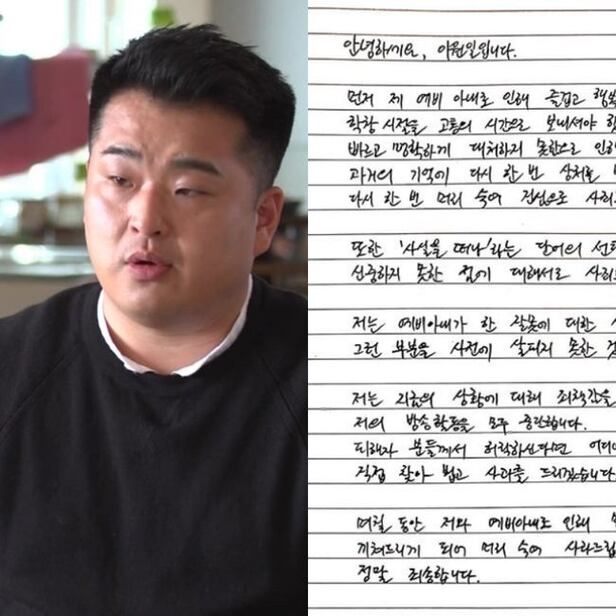 안녕하세요, 이원일입니다.
먼저 제 예비 아내로 인해 즐겁고 행복
학창 시절을 고통의 시간으로 보내셔야
빠르고 명확하게 대처하지 못함으로 인해
과거의 기억에 다시 한 번 상처를
다시 한 번 머리 숙여 진심으로 사죄
또한 '사실을 떠나'라는 단어의 선택
신중하지 못한 점에 대해서도 사죄
저는 예비아내가 한 잘못에 대한
그런 부분을 사전에 살피지 못한 것
저는 지금의 상황에 대해 죄책감을
저의 방송활동을 모두 중단합니다.
피해자 분들께서 허락하신다면 어디
직접 찾아 뵙고 사과를 드리겠습니다
며칠 동안 저와 예비아내로 인해
끼쳐드리게 되어 머리 숙여 사과드립
정말 죄송합니다.